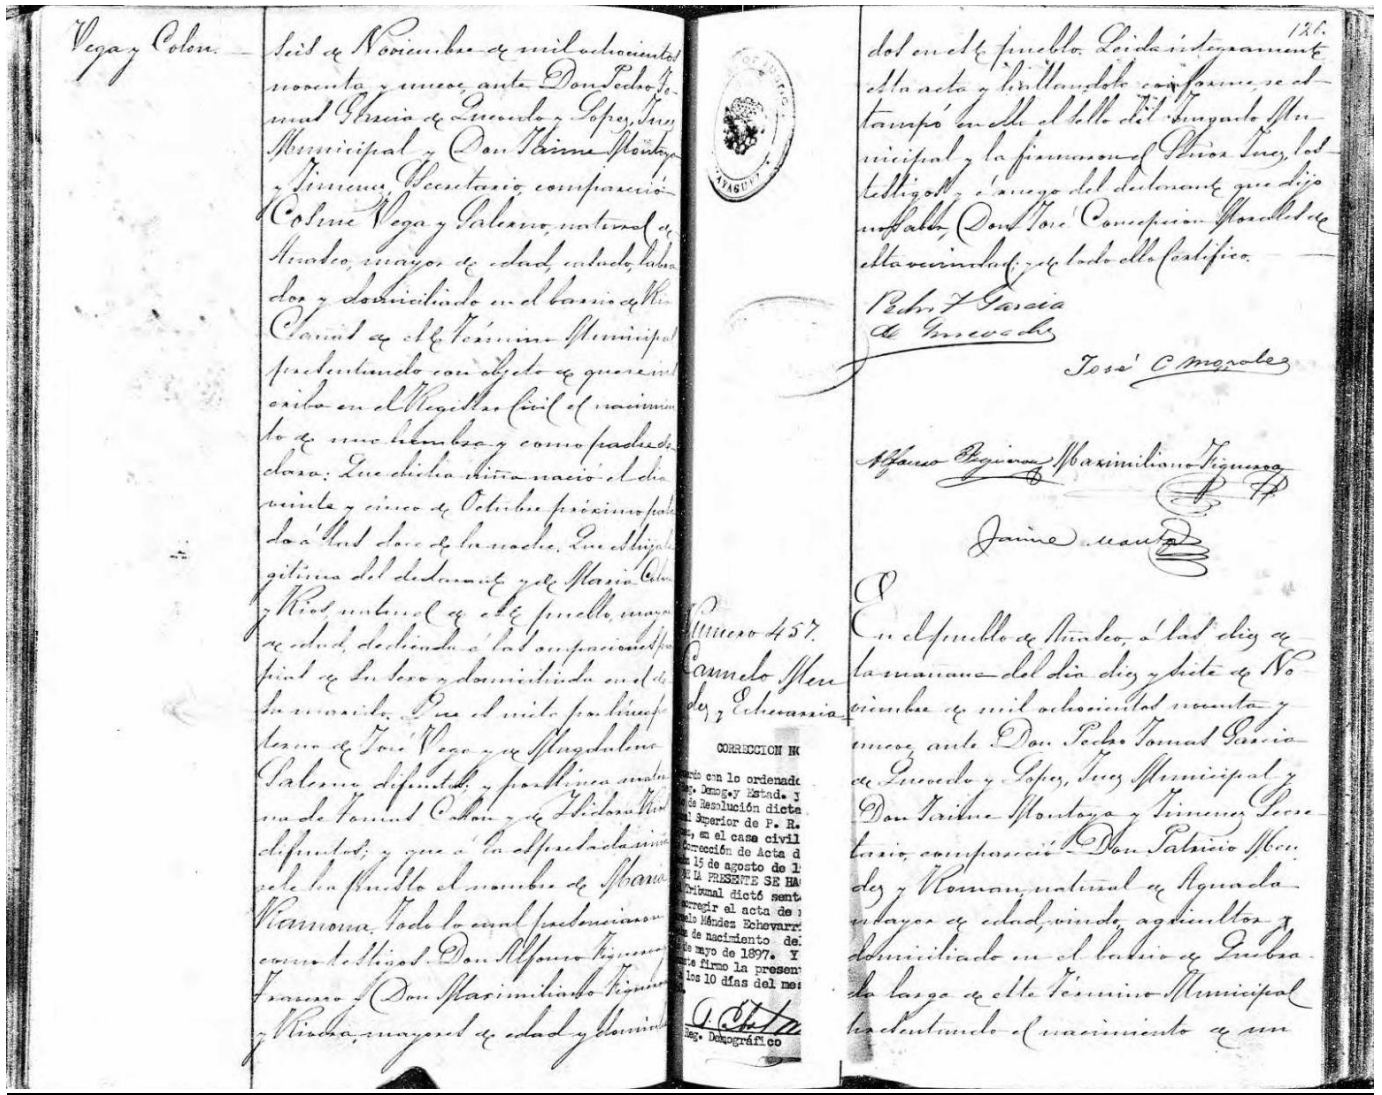 Vega y Colon.
seis de Noviembre de mil ochocientos
noventa y nueve, ante Don Pedro To-
mas Garcia de Quevedo y Lopez, Juez
Municipal y Don Jaime Montoya
y Jimenez, Secretario, compareció
Cosme Vega y Salerno, natural de
Añasco, mayor de edad, casado, labra
dor y domiciliado en el barrio de Rio
Cañas de este Término Municipal
presentando con objeto de que se ins
criba en el Registro Civil el nacimien
to de una hembra y como padre de-
clara: Que dicha niña nació el dia
veinte y cinco de Octubre próximo pasa
do á las doce de la noche. Que es hija le
gitima del declarante y de Maria Colon
y Rios, natural de este pueblo, mayor
de edad, dedicada á las ocupaciones pro
pias de su sexo y domiciliada en el de
su marido. Que es nieta por linea pa
terna de José Vega y de Magdalena
Salerno difuntos; y por linea mater
na de Tomas Colon y de Isidora Rios
difuntos; y que á la espresada niña
se le ha puesto el nombre de Maria
Ramona. Todo lo cual presenciaron
como testigos Don Alfonso Figueroa y
Frasesco y Don Maximiliano Figueroa
y Rivera, mayores de edad y domicilia
MAYAGUEZ
Número 457.
Carmelo Men
dez y Echevarria
CORRECCION NO
con lo ordenado
Reg. Demog. y Estad. y
de Resolución dicta
Superior de P. R.
en el caso civil
Corrección de Acta d
15 de agosto de 1
LA PRESENTE SE HA
Tribunal dictó sent
corregir el acta de
Méndez Echevarr
de nacimiento de
de mayo de 1897. Y
firmo la presen
los 10 días del me
Reg. Demográfico
126.
dos en este pueblo. Leida integramente
esta acta y hallandola conforme, se es-
tampó en ella el sello del Juzgado Mu-
nicipal y la firmaron el Señor Juez, los
testigos y á ruego del declarante que dijo
no saber, Don José Concepcion Morales de
esta vecindad; y de todo ello Certifico.
Pedro T Garcia
de Quevedo
José C Morales
Alfonso Figueroa Maximiliano Figueroa
Jaime Montoya
En el pueblo de Añasco, á las diez de
la mañana del dia diez y siete de No-
viembre de mil ochocientos noventa y
nueve, ante Don Pedro Tomas Garcia
de Quevedo y Lopez, Juez Municipal y
Don Jaime Montoya y Jimenez Secre-
tario, compareció Don Patricio Men-
dez y Roman, natural de Aguada
mayor de edad, viudo, agricultor y
domiciliado en el barrio de Quebra-
da larga de este Término Municipal
presentando el nacimiento de un